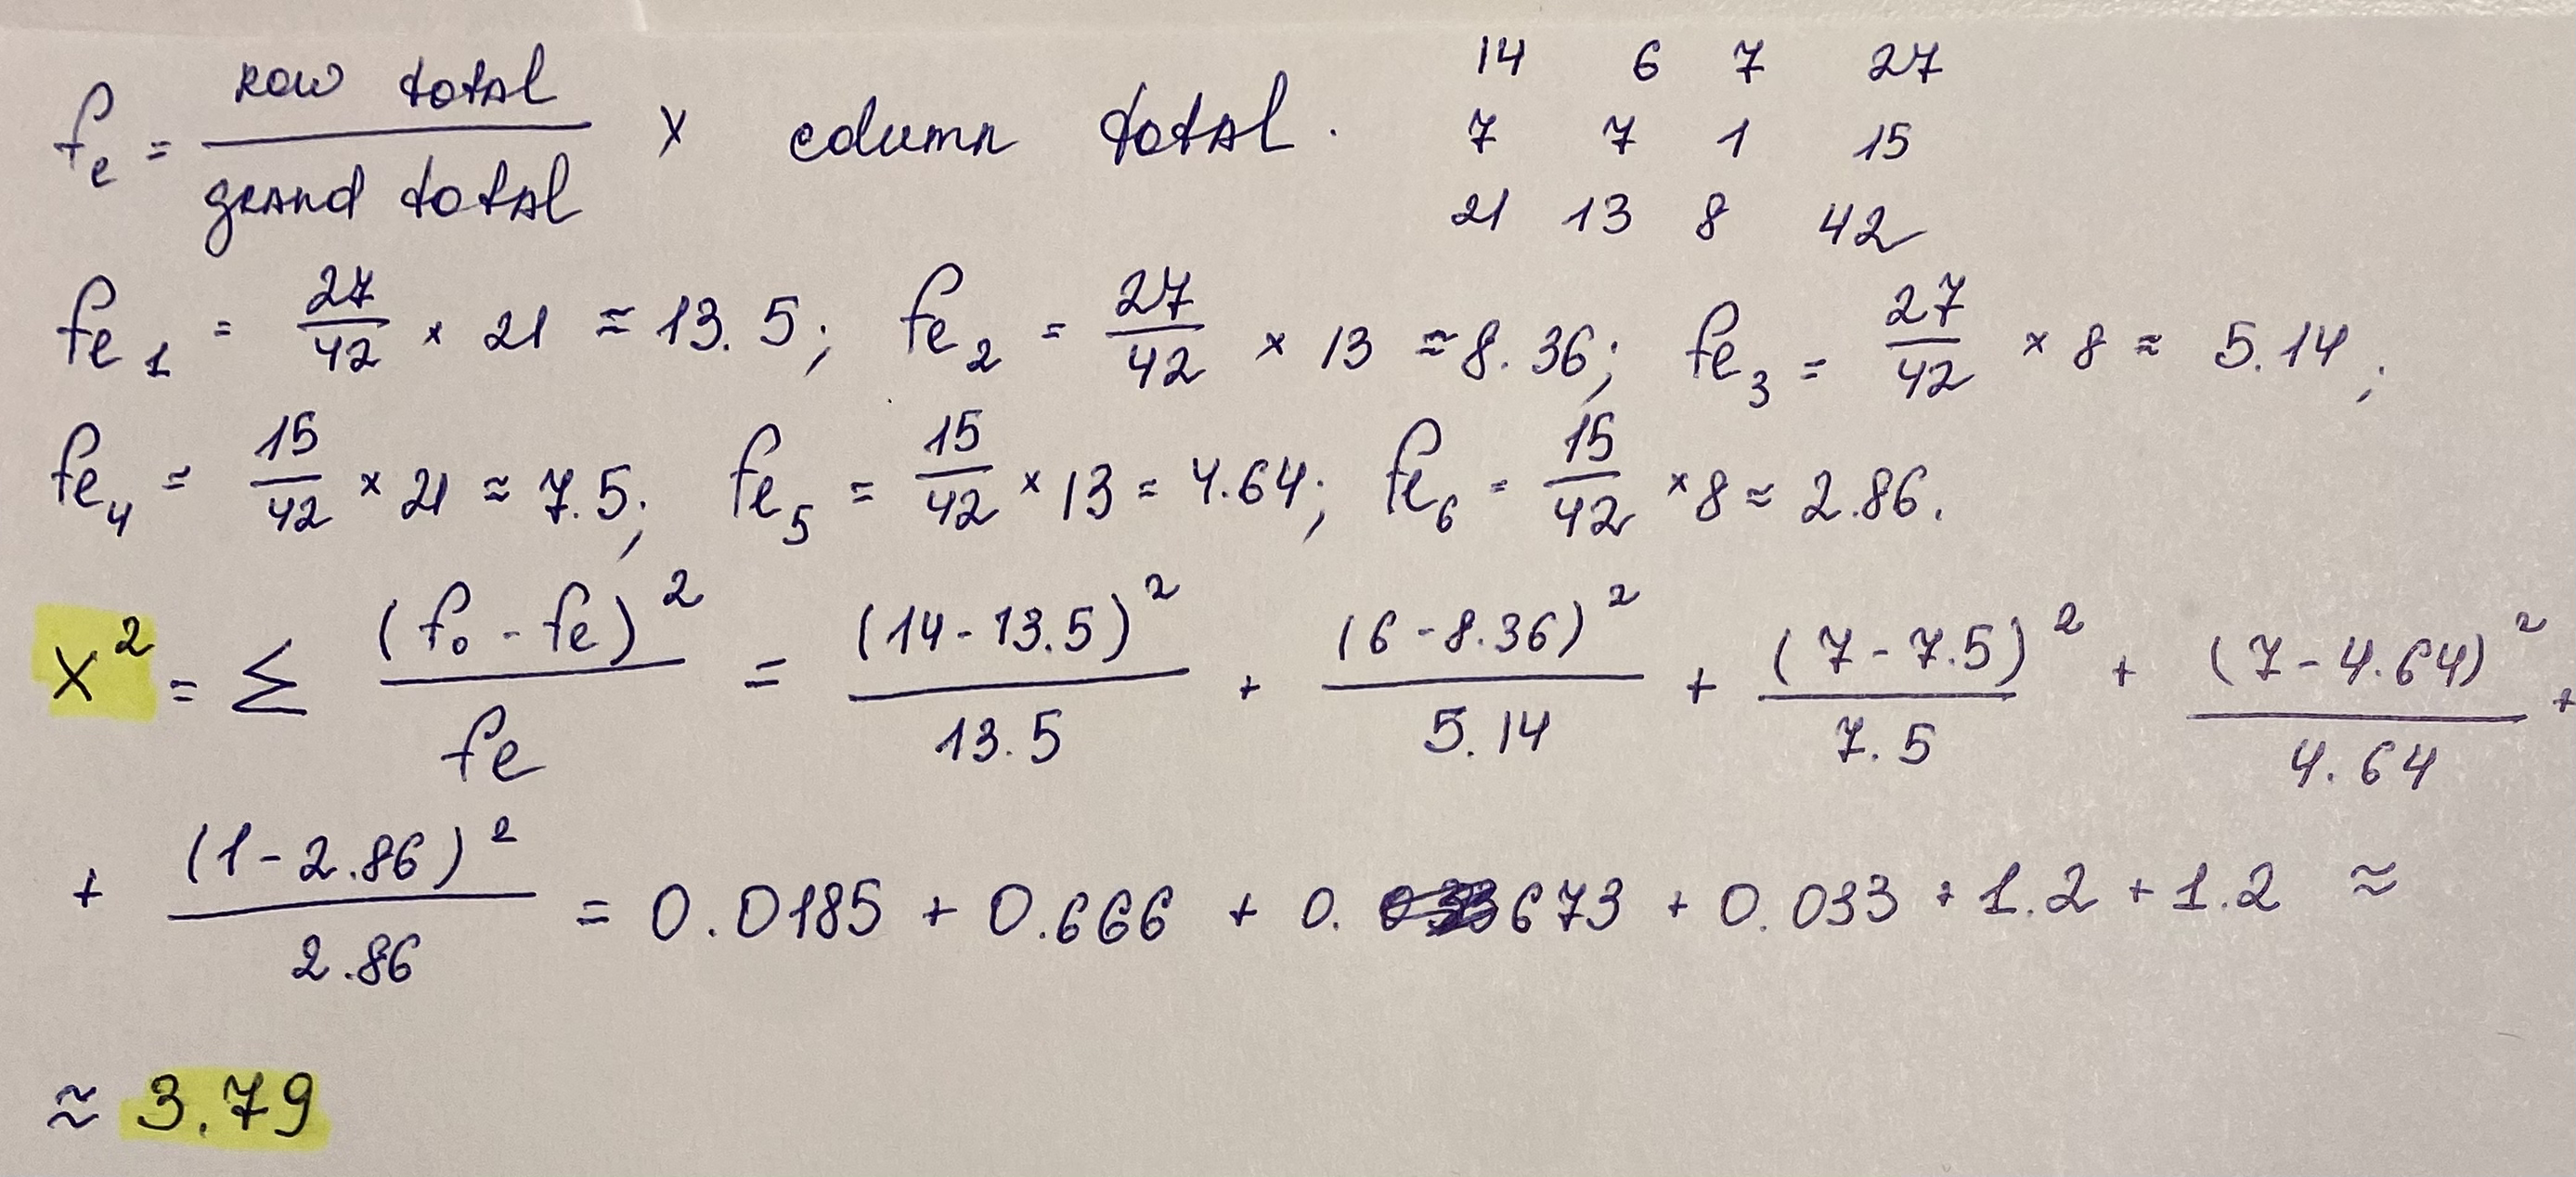 fe = row total / grand total × column total.
14 6 7 27
7 7 1 15
21 13 8 42
fe1 = 27/42 × 21 ≈ 13.5; fe2 = 27/42 × 13 ≈ 8.36; fe3 = 27/42 × 8 ≈ 5.14;
fe4 = 15/42 × 21 ≈ 7.5; fe5 = 15/42 × 13 = 4.64; fe6 = 15/42 × 8 ≈ 2.86.
X² = Σ (fo - fe)² / fe = (14 - 13.5)² / 13.5 + (6 - 8.36)² / 5.14 + (7 - 7.5)² / 7.5 + (7 - 4.64)² / 4.64 +
+ (1 - 2.86)² / 2.86 = 0.0185 + 0.666 + 0.673 + 0.033 + 1.2 + 1.2 ≈
≈ 3.79